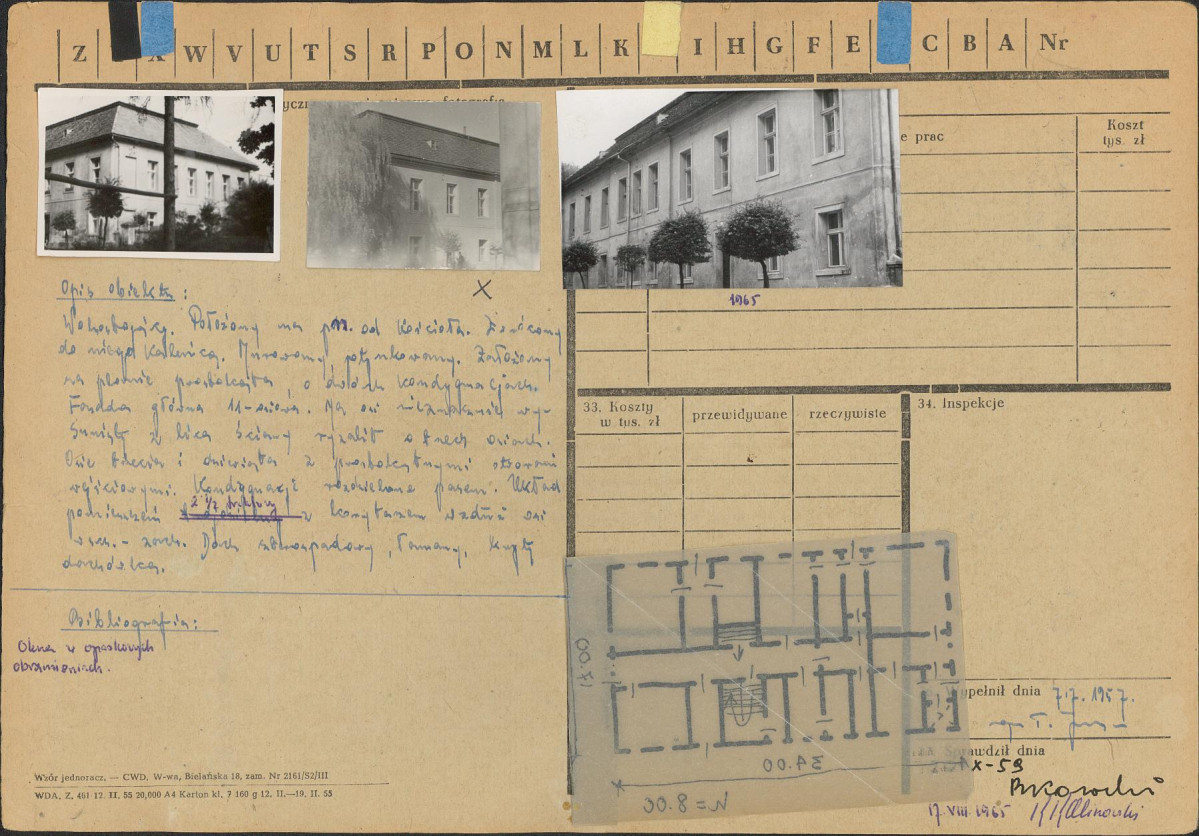 Z W V U T S R P O N M L K I H G F E C B A Nr
fotografia
e prac
Koszt
tys. zł
1965
Opis obiektu:
Wolnostojący. Położony na płn. od kościoła. Zwrócony
do niego kalenicą. Murowany, otynkowany. Założony
na planie prostokąta, o dwóch kondygnacjach.
Fasada główna 11-osiowa. Na osi nieznacznie wy-
sunięty z lica ściany ryzalit o trzech osiach.
Osie trzecia i dziewiąta z prostokątnymi otworami
wejściowymi. Kondygnacje rozdzielone pasem. Układ
2 1/2 traktowy
pomieszczeń z korytarzem wzdłuż osi
wsch. - zach. Dach czterospadowy, łamany, kryty
dachówką.
Bibliografia:
Okna w opaskowych
obramieniach.
33. Koszty
w tys. zł
przewidywane
rzeczywiste
34. Inspekcje
17.00
34.00
N = 8.00
Wypełnił dnia 7.7.1957.
Sprawdził dnia
X-59
17.VIII.1965
Wzór jednoracz. — CWD, W-wa, Bielańska 18, zam. Nr 2161/S2/III
WDA, Z, 461 12. II. 55 20,000 A4 Karton kl. 7 160 g 12. II.—19. II. 55